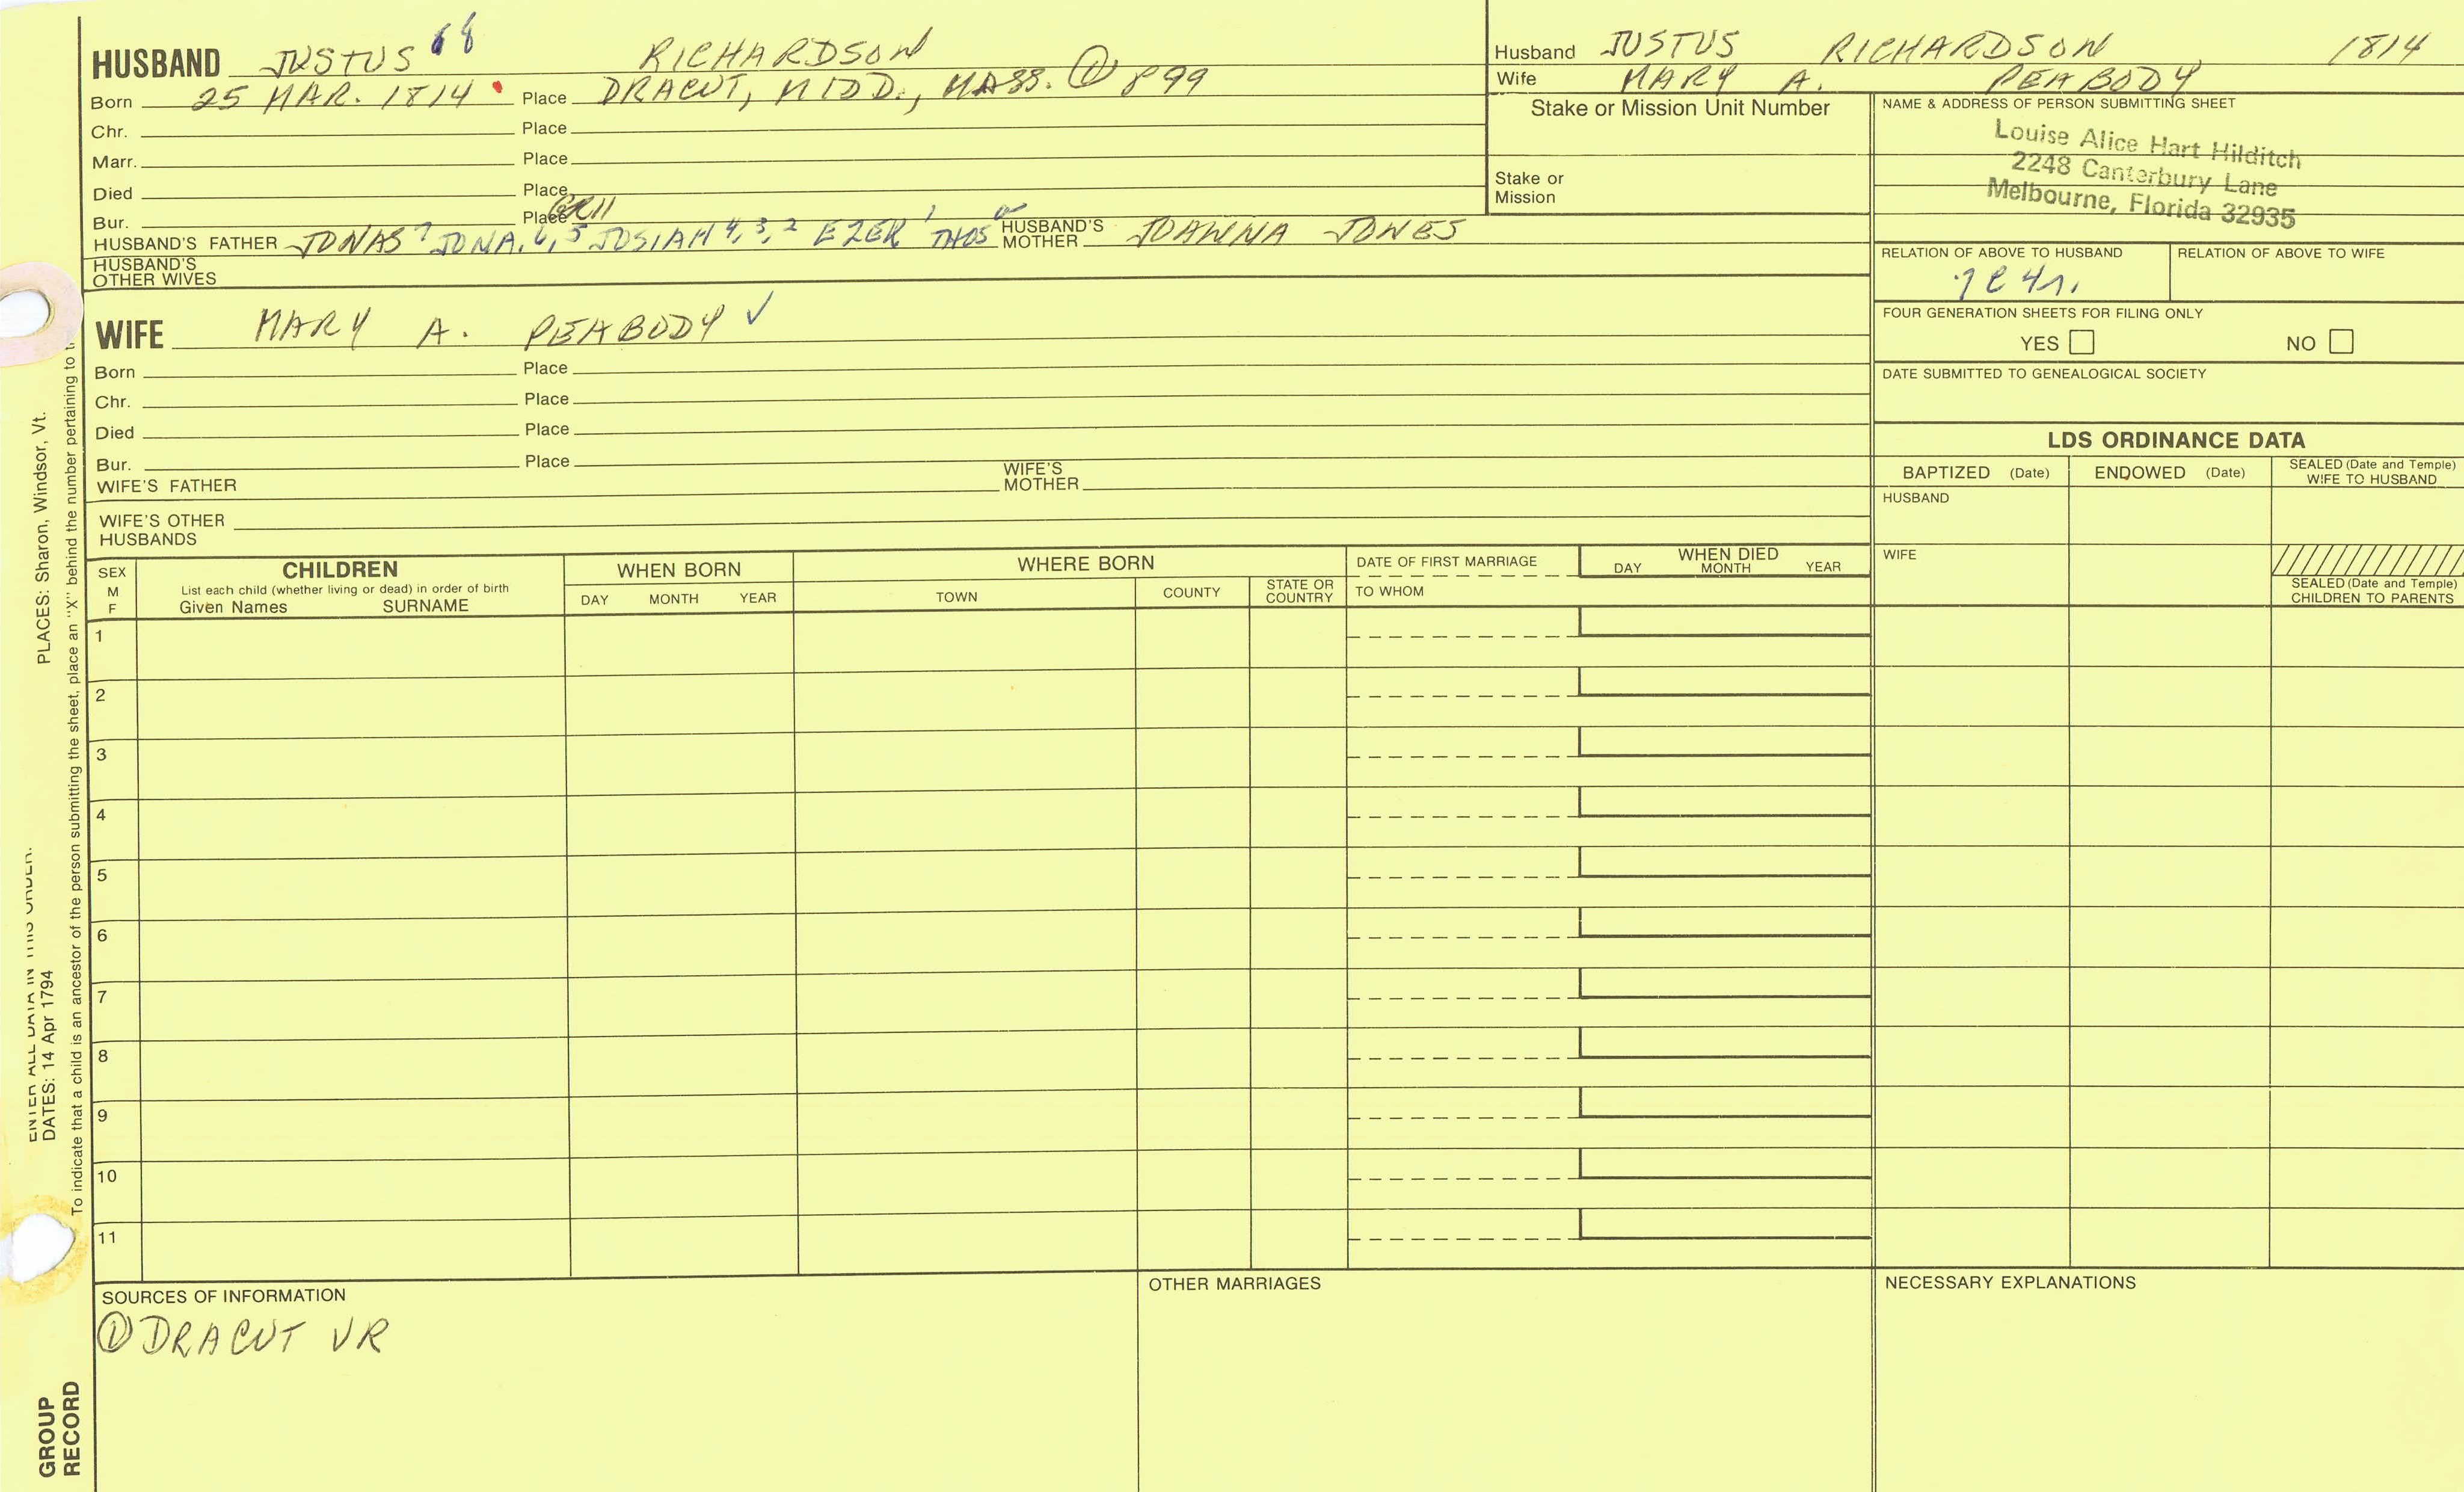 HUSBAND JUSTUS 8 RICHARDSON
Born 25 MAR. 1814 Place DRACUT, MIDD., MASS. ① 899
Chr. Place
Marr. Place
Died Place
Bur. Place
HUSBAND'S FATHER JONAS 7 JONA. 6, 5 JOSIAH 4, 3, 2 EZER 1 THOS HUSBAND'S MOTHER JOANNA JONES
HUSBAND'S OTHER WIVES
Husband JUSTUS RICHARDSON 1814
Wife MARY A. PEABODY
Stake or Mission Unit Number
Stake or
Mission
NAME & ADDRESS OF PERSON SUBMITTING SHEET
Louise Alice Hart Hilditch
2248 Canterbury Lane
Melbourne, Florida 32935
RELATION OF ABOVE TO HUSBAND RELATION OF ABOVE TO WIFE
FOUR GENERATION SHEETS FOR FILING ONLY
YES NO
DATE SUBMITTED TO GENEALOGICAL SOCIETY
WIFE MARY A. PEABODY ✓
Born Place
Chr. Place
Died Place
Bur. Place
WIFE'S FATHER WIFE'S MOTHER
WIFE'S OTHER
HUSBANDS
LDS ORDINANCE DATA
BAPTIZED (Date) ENDOWED (Date) SEALED (Date and Temple) WIFE TO HUSBAND
HUSBAND
WIFE
SEALED (Date and Temple)
CHILDREN TO PARENTS
SEX
M
F
CHILDREN
List each child (whether living or dead) in order of birth
Given Names SURNAME
WHEN BORN
DAY MONTH YEAR
WHERE BORN
TOWN COUNTY STATE OR COUNTRY
DATE OF FIRST MARRIAGE
TO WHOM
WHEN DIED
DAY MONTH YEAR
1
2
3
4
5
6
7
8
9
10
11
SOURCES OF INFORMATION
① DRACUT VR
OTHER MARRIAGES
NECESSARY EXPLANATIONS
PLACES: Sharon, Windsor, Vt.
ENTER ALL DATA IN THIS ORDER.
DATES: 14 Apr 1794
To indicate that a child is an ancestor of the person submitting the sheet, place an "X" behind the number pertaining to
GROUP
RECORD